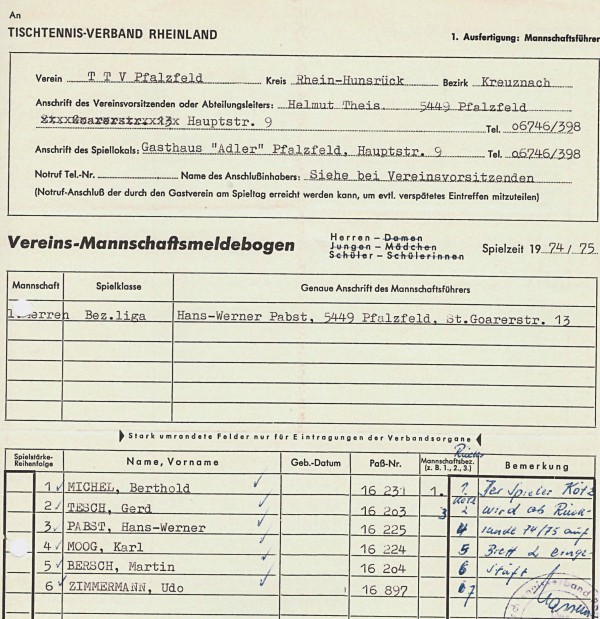 An
TISCHTENNIS-VERBAND RHEINLAND
1. Ausfertigung: Mannschaftsführer
Verein T T V Pfalzfeld Kreis Rhein-Hunsrück Bezirk Kreuznach
Anschrift des Vereinsvorsitzenden oder Abteilungsleiters: Helmut Theis. 5449 Pfalzfeld
Hauptstr. 9 Tel. o6746/398
Anschrift des Spiellokals: Gasthaus "Adler" Pfalzfeld, Hauptstr. 9 Tel. o6746/398
Notruf Tel.-Nr. Name des Anschlußinhabers: Siehe bei Vereinsvorsitzenden
(Notruf-Anschluß der durch den Gastverein am Spieltag erreicht werden kann, um evtl. verspätetes Eintreffen mitzuteilen)
Vereins-Mannschaftsmeldebogen
Herren – Damen
Jungen – Mädchen
Schüler – Schülerinnen
Spielzeit 19 74/ 75
Mannschaft Spielklasse Genaue Anschrift des Mannschaftsführers
1. Herren Bez.liga Hans-Werner Pabst, 5449 Pfalzfeld, St.Goarerstr. 13
Stark umrandete Felder nur für Eintragungen der Verbandsorgane
Spielstärke-Reihenfolge Name, Vorname Geb.-Datum Paß-Nr. Mannschaftsbez. (z. B. 1., 2., 3.) Bemerkung
1 MICHEL, Berthold 16 231 1. 1. Der Spieler Kötz
2 TESCH, Gerd 16 2o3 3 wird ab Rück-
3 PABST, Hans-Werner 16 225 4 runde 74/75 auf
4 MOOG, Karl 16 224 5 Brett 2 einge-
5 BERSCH, Martin 16 2o4 6 stuft
6 ZIMMERMANN, Udo 16 897 7